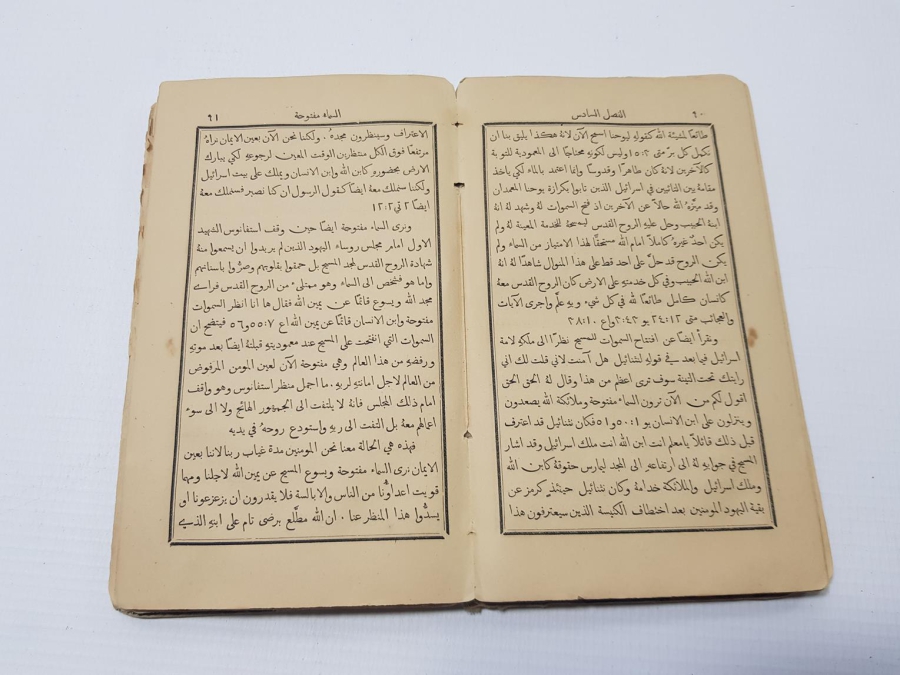 ٩٠
الفصل السادس
طائعًا لمشيئة الله كقولهِ ليوحنا اسمح الآن لانهُ هكذا يليق بنا ان
نكمل كل بر متى ١٥:٣ وليس لكونهِ محتاجًا الى المعمودية للتوبة
كالآخرين لانهُ كان طاهرًا وقدوسًا وانما اعتمد بالماء لكي ياخذ
مقامهُ بين التائبين في اسرائيل الذين تابوا بكرازة يوحنا المعمدان
وقد ميّزهُ الله حالاً عن الآخرين اذ فتح السموات لهُ وشهد لهُ انهُ
ابنهُ الحبيب وحل عليهِ الروح القدس ليمسحهُ للخدمة المعينة لهُ ولم
يكن احدٌ غيرهُ كاملاً امام الله مستحقًا لهذا الامتياز من السماء ولم
يكن الروح قد حلَّ على احد قط على هذا المنوال شاهدًا لهُ انهُ
ابن الله الحبيب وفي كل خدمتهِ على الارض كان الروح القدس معهُ
كانسان كامل طائعًا لله في كل شيء وبهِ علَّم واجرى الآيات
والعجائب متى ٢٤:١٢ يو ٣٤:٣ واع ٢٨:١٠
ونقرأ ايضًا عن افتتاح السموات للمسيح نظرًا الى ملكهِ لامة
اسرائيل فيما بعد في قولهِ لنثنائيل هل آمنت لاني قلت لك اني
رايتك تحت التينة سوف ترى اعظم من هذا وقال لهُ الحق الحق
اقول لكم من الآن ترون السماء مفتوحة وملائكة الله يصعدون
وينزلون على ابن الانسان يو ٥٠:١ و٥١ فكان نثنائيل قد اعترف
قبل ذلك قائلاً يامعلم انت ابن الله انت ملك اسرائيل وقد اشار
المسيح في جوابهِ لهُ الى ارتفاعهِ الى المجد ليمارس حقوقهُ كابن الله
وملك اسرائيل والملائكة خدامهُ وكان نثنائيل حينئذٍ كرمز عن
بقية اليهود المومنين بعد اختطاف الكنيسة الذين سيعترفون هذا
السماء مفتوحة
٩١
الاعتراف وسينظرون مجدهُ. ولكننا نحن الآن بعين الايمان نراهُ
مرتفعًا فوق الكل منتظرين الوقت المعين لرجوعهِ لكي يبارك
الارض بحضورهِ كابن الله وابن الانسان ويملك على بيت اسرائيل
ولكننا سنملك معهُ ايضًا كقول الرسول ان كنا نصبر فسنملك معهُ
ايضًا ٢ تي ١٢:٢
ونرى السماء مفتوحة ايضًا حين وقف استفانوس الشهيد
الاول امام مجلس روساء اليهود الذين لم يريدوا ان يسمعوا منهُ
شهادة الروح القدس لمجد المسيح بل حمقوا بقلوبهم وصرُّوا باسنانهم
واما هو فشخص الى السماء وهو ممتلىء من الروح القدس فراى
مجد الله ويسوع قائمًا عن يمين الله فقال ها انا انظر السموات
مفتوحة وابن الانسان قائمًا عن يمين الله اع ٥٥:٧ و٥٦ فيتضح ان
السموات التي انفتحت على المسيح عند معموديتهِ قبلتهُ ايضًا بعد موتهِ
ورفضهِ من هذا العالم وهي مفتوحة الآن لعين المومن المرفوض
من العالم لاجل امانتهِ لربهِ. ما اجمل منظر استفانوس وهو واقف
امام ذلك المجلس فانهُ لا يلتفت الى الجمهور الهائج ولا الى سوء
اعمالهم معهُ بل التفت الى ربهِ واستودع روحهُ في يديهِ
فهذه هي الحالة معنا نحن المومنين مدة غياب ربنا لاننا بعين
الايمان نرى السماء مفتوحة ويسوع المسيح عن يمين الله لاجلنا ومهما
قويت اعداؤنا من الناس والابالسة فلا يقدرون ان يزعزعونا او
يسدُّوا هذا المنظر عنا. ان الله مطَّلع برضى تام على ابنهِ الذي